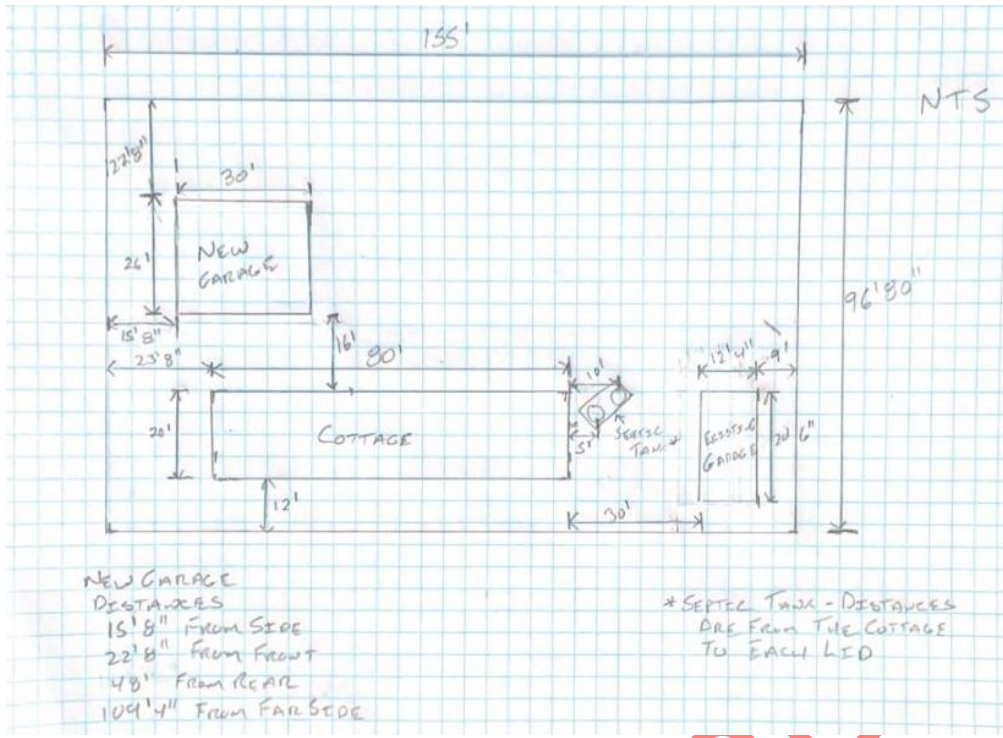 155'
NTS
22'8"
30'
NEW
GARAGE
26'
96'80"
15'8"
16'
23'8"
80'
10'
12'4"
9'
20'
COTTAGE
5'
SEPTIC
TANK*
EXISTING
GARAGE
20'6"
12'
30'
NEW GARAGE
DISTANCES
15'8" FROM SIDE
22'8" FROM FRONT
48' FROM REAR
109'4" FROM FAR SIDE
* SEPTIC TANK - DISTANCES
ARE FROM THE COTTAGE
TO EACH LID